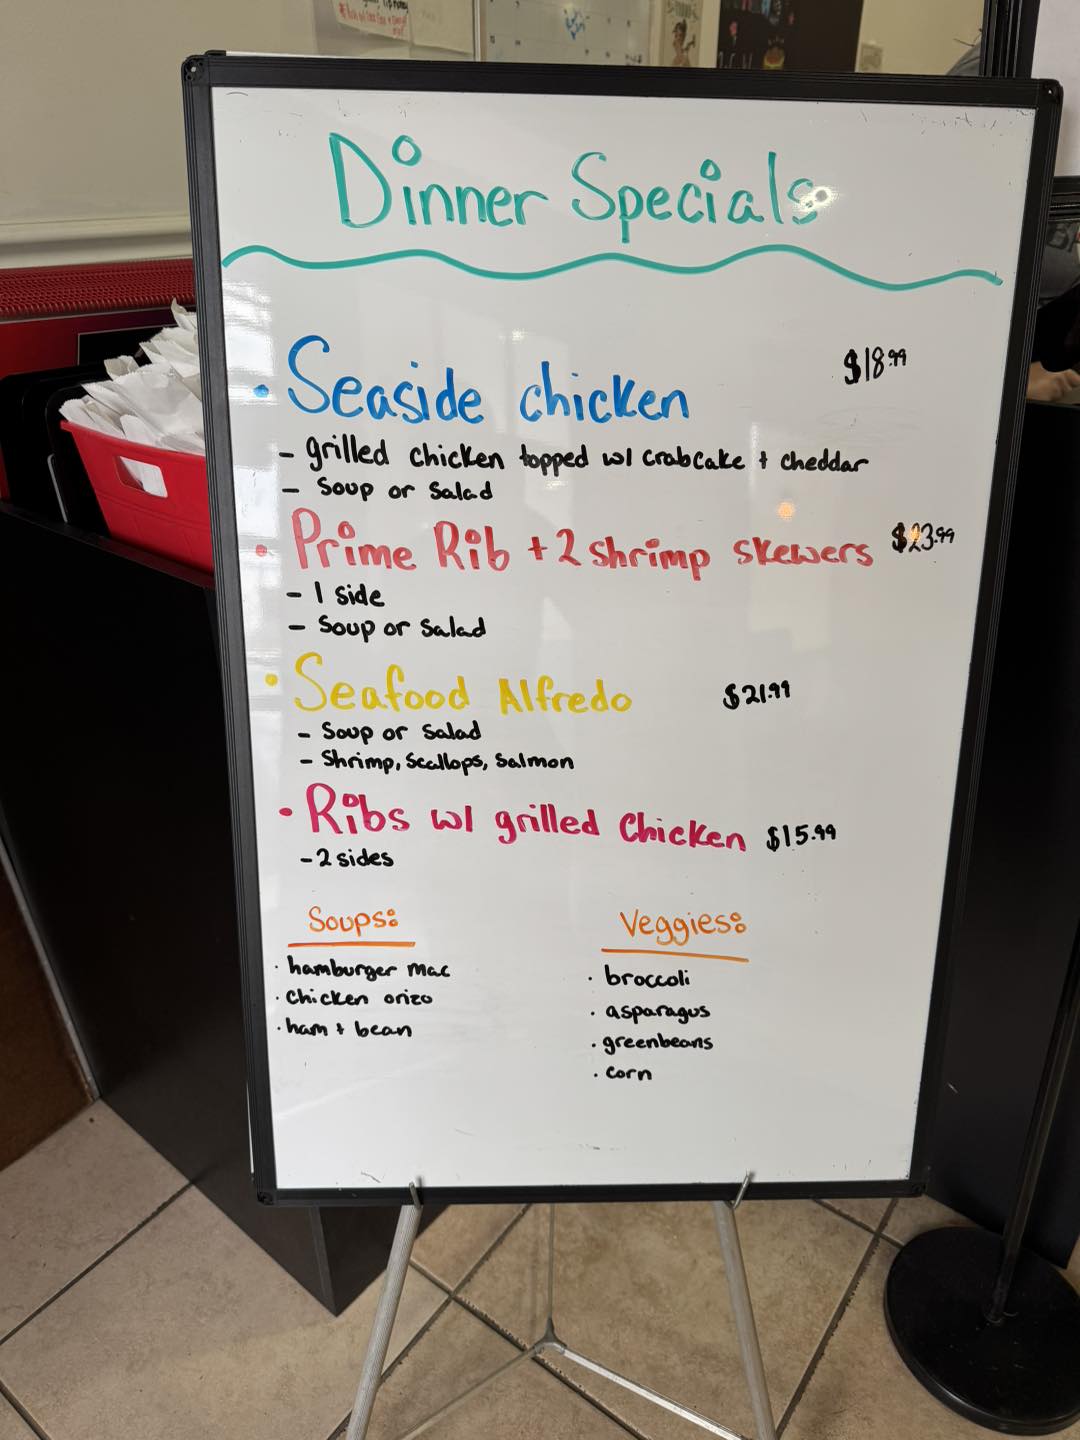 Dinner Specials
• Seaside chicken $18.99
- grilled chicken topped w/ crabcake + cheddar
- Soup or Salad
• Prime Rib + 2 shrimp skewers $23.99
- 1 side
- Soup or Salad
• Seafood Alfredo $21.99
- Soup or Salad
- Shrimp, Scallops, Salmon
• Ribs w/ grilled Chicken $15.99
- 2 sides
Soups:
· hamburger mac
· chicken orizo
· ham + bean
Veggies:
· broccoli
· asparagus
· greenbeans
· corn